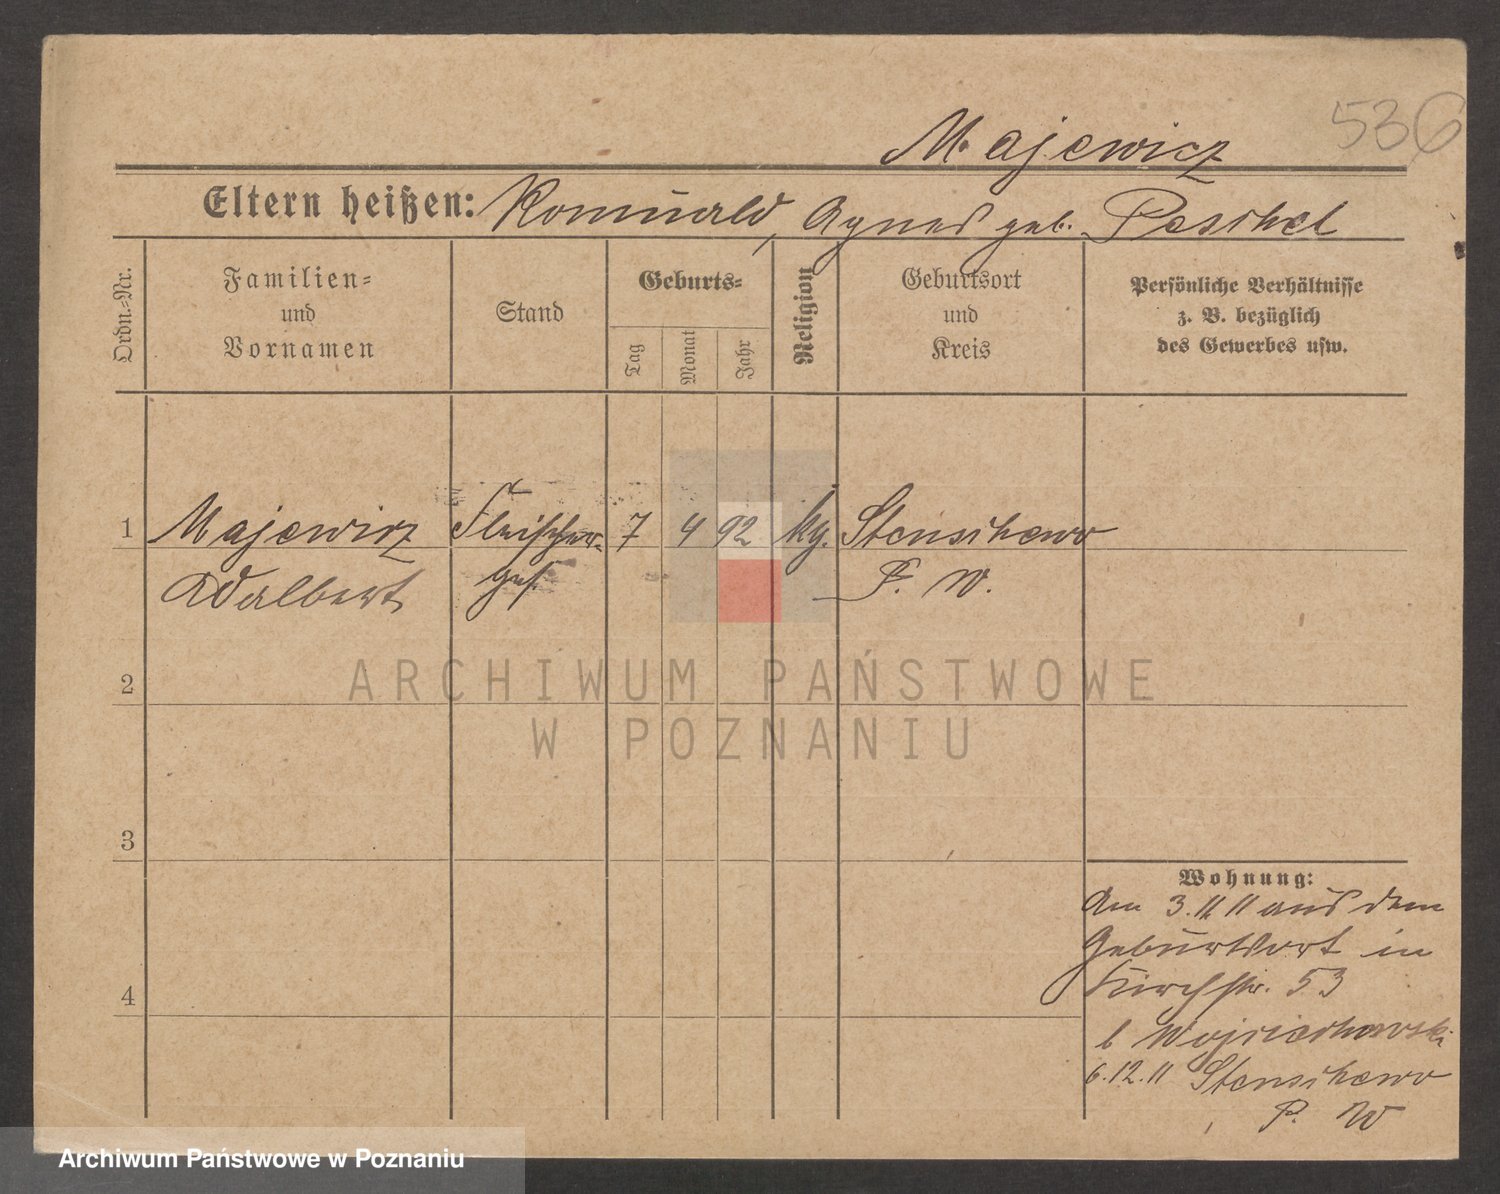 536
Majewicz
Eltern heißen: Romuald, Agnes geb. Peschel
Ordn.=Nr.
Familien=
und
Vornamen
Stand
Geburts=
Tag
Monat
Jahr
Religion
Geburtsort
und
Kreis
Persönliche Verhältnisse
z. B. bezüglich
des Gewerbes usw.
1 Majewicz Fleischer- 7 4 92 kg. Stenschewo
Adalbert ges. P. W.
2
ARCHIWUM PAŃSTWOWE
W POZNANIU
3
Wohnung:
Am 3.11 11 aus dem
Geburtsort in
4 Kirchstr. 53
b Wojciechowski
6.12.11 Stenschewo
P. W
Archiwum Państwowe w Poznaniu